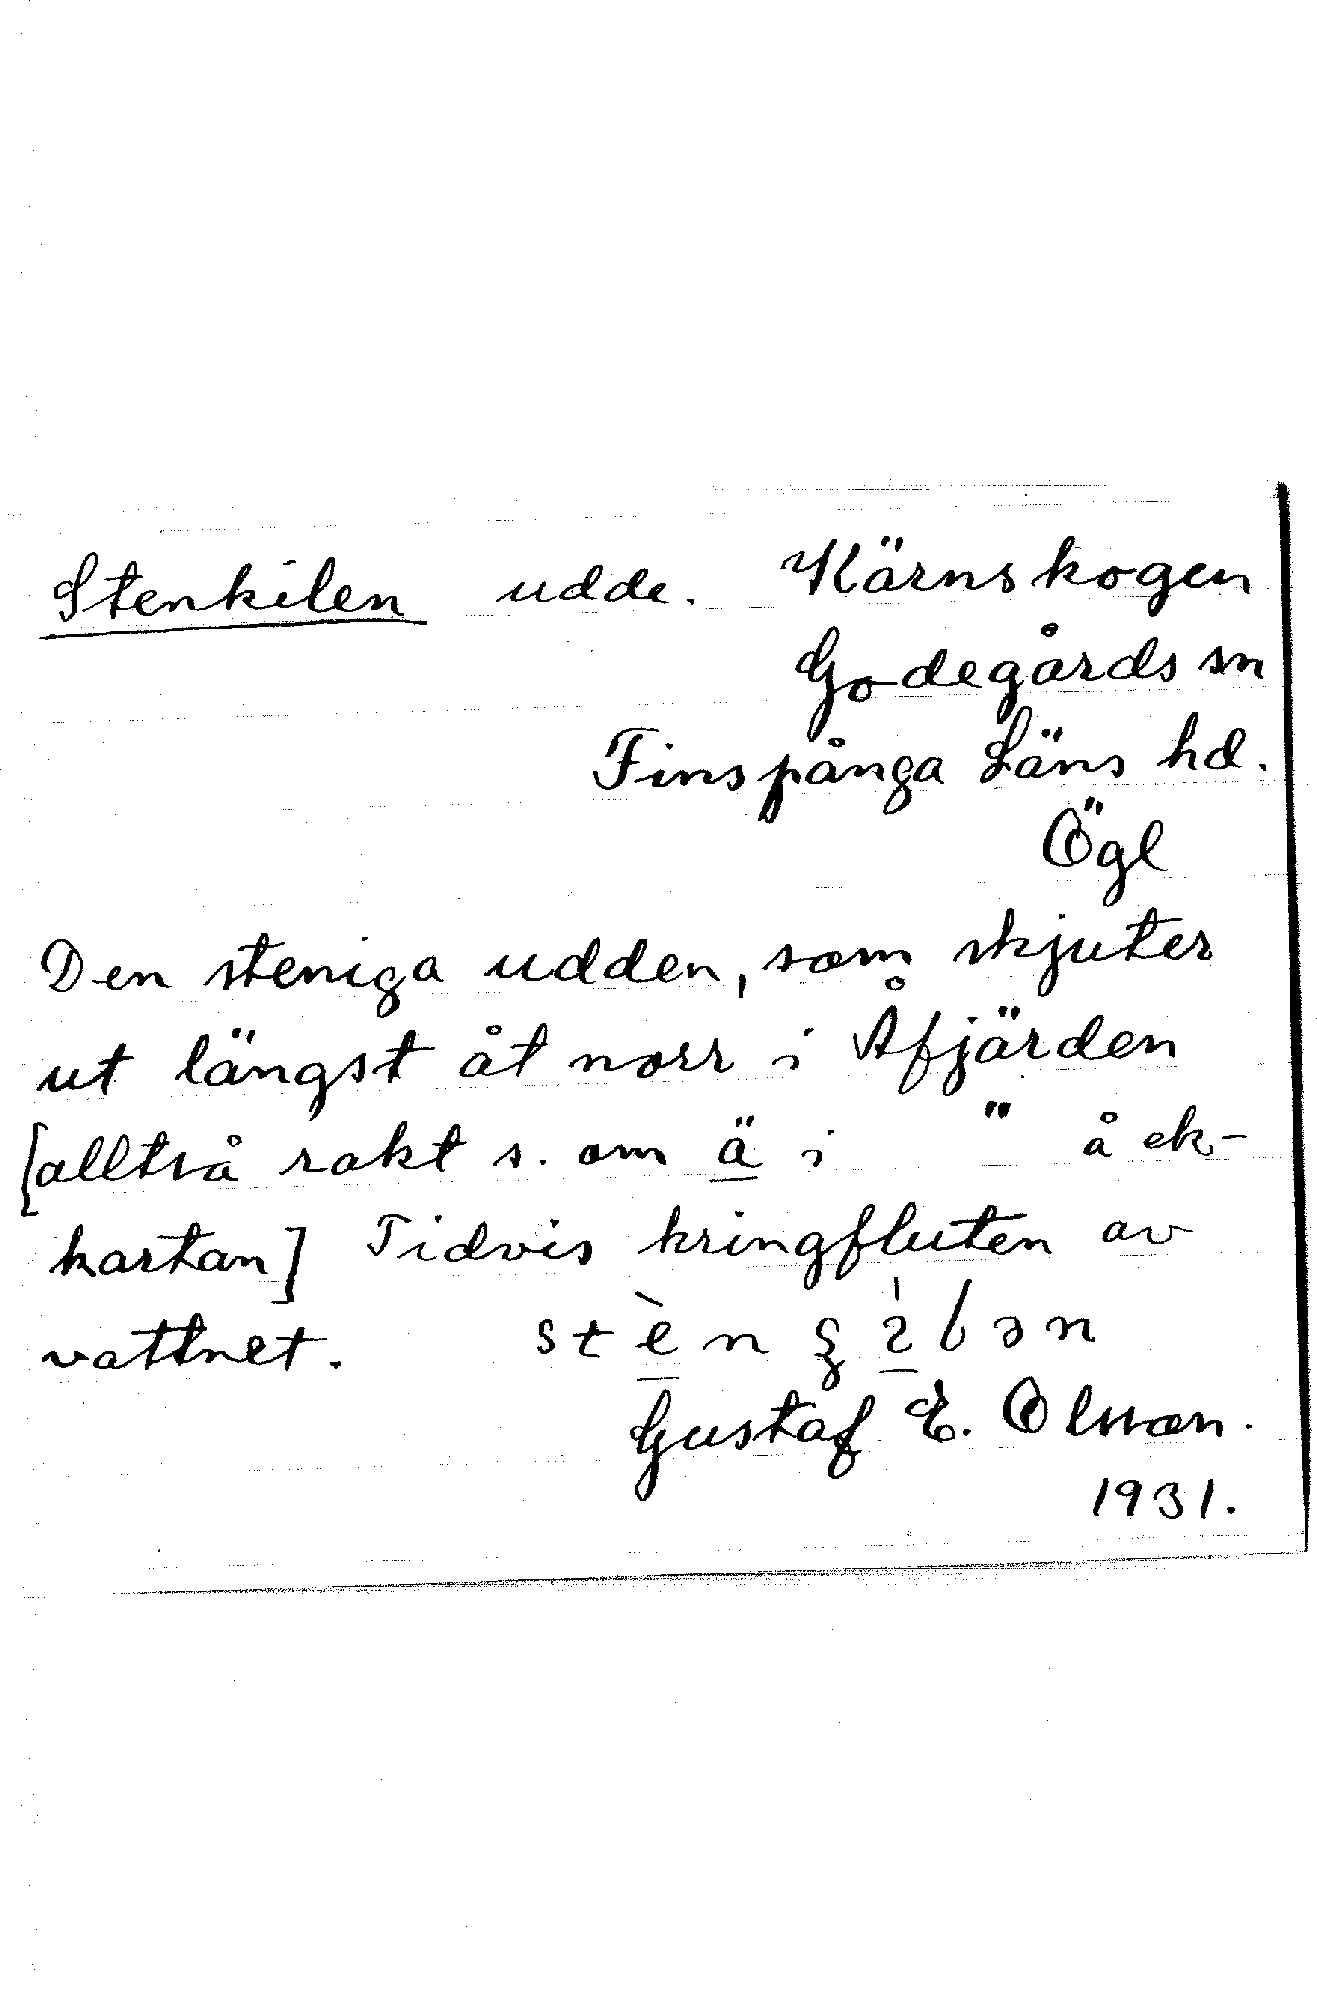 Stenkilen udde. Kärnskogen
Godegårds sn
Finspånga Läns hd.
Ögl
Den steniga udden, som skjuter
ut längst åt norr i Åfjärden
[alltså rakt s. om ä i " å ek-
kartan] Tidvis kringfluten av
vattnet.
Gustaf E. Olsson.
1931.